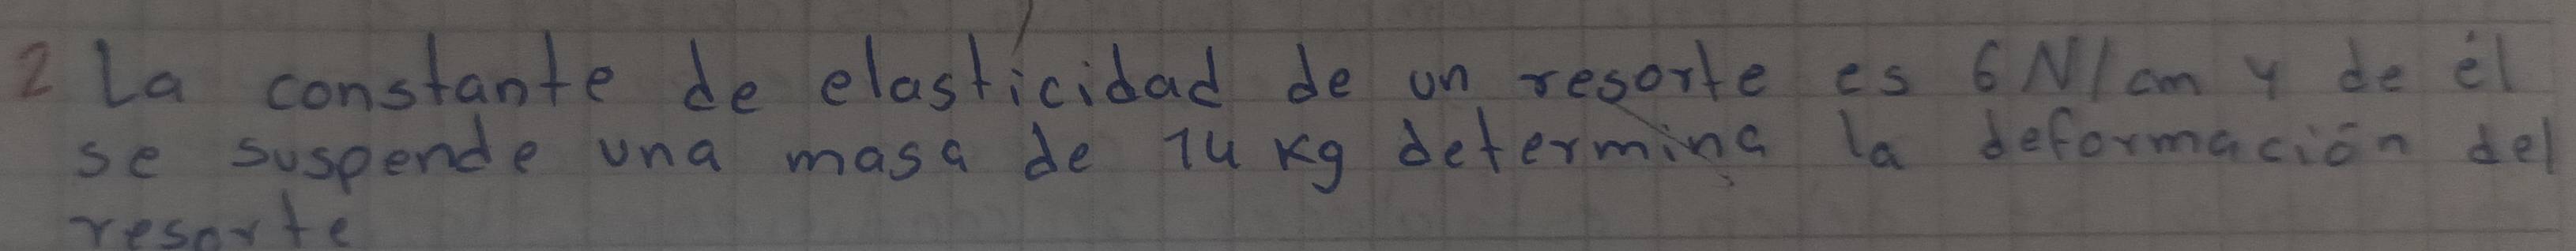 2 La constante de elasticidad de un resorte es 6 N/cm y de él
se suspende una masa de 14 kg determina la deformación del
resorte